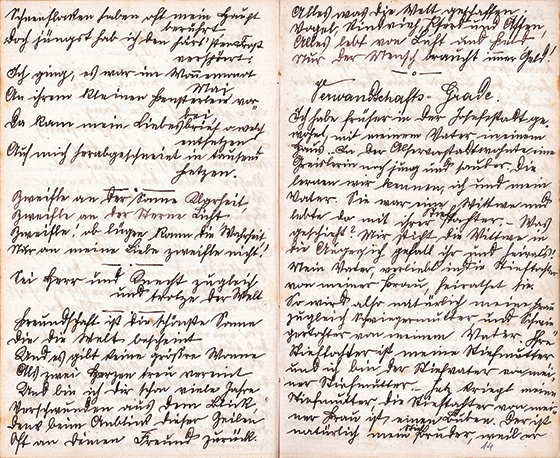 Schneeflocken haben oft mein Haupt
berührt
Doch jüngst hab ich den
verspürt:
Ich ging, es war im Wonnemonat
Mai
An ihrem kleinen Fensterlein vor-
bei
Da kam mein Liebesbrief o welch
entsetzen
Auf mich herabgeschneiet in tausend
Fetzen.
Zweifle an der Sonne Klarheit,
Zweifle an der Sterne Licht
Zweifle! ob lügen kann die Wahrheit
Nur an meine Liebe zweifle nicht!
Sei Herr und Knecht zugleich
und trotze der Welt
Freundschaft ist die schönste Sonne
Die die Welt bescheint
Und es gibt keine größre Wonne
Als zwei Herzen treu vereint
Und bin ich dir schon viele Jahre
Verschwunden aus dem Blick,
Denk beim Anblick dieser Zeilen
Oft an deinen Freund zurück.
Alles was die Welt geschaffen:
Vogel, Rindvieh, Pferd und Affen,
Alles lebt von Luft und
Nur der Mensch braucht immer Geld!
Verwandschafts-Grade.
Ich habe früher in der Josefstadt ge-
wohnt, mit meinem Vater in einem
Haus. In der wohnte eine
Greislerin noch jung und sauber. Die
lernen wir kennen, ich und mein
Vater. Sie war eine Wittwe und
lebte da mit ihrer Stieftochter. Was
geschieht? Mir sticht die Wittwe in
die Augen, ich gefall ihr und heirats!
Mein Vater, verliebt in die Stieftochter
von meiner Frau, heirathet sie
So wird also natürlich meine Frau
zugleich Schwiegermutter und Schwie-
gertochter von meinem Vater. Ihre
Stieftochter ist meine Stiefmutter
und ich bin der Stiefvater von mei-
ner Stiefmutter. Jetz kriegt meine
Stiefmutter die Stieftochter von mei-
ner Frau ist, einen Buben. Der ist
natürlich mein Stiefbruder, weil er
14